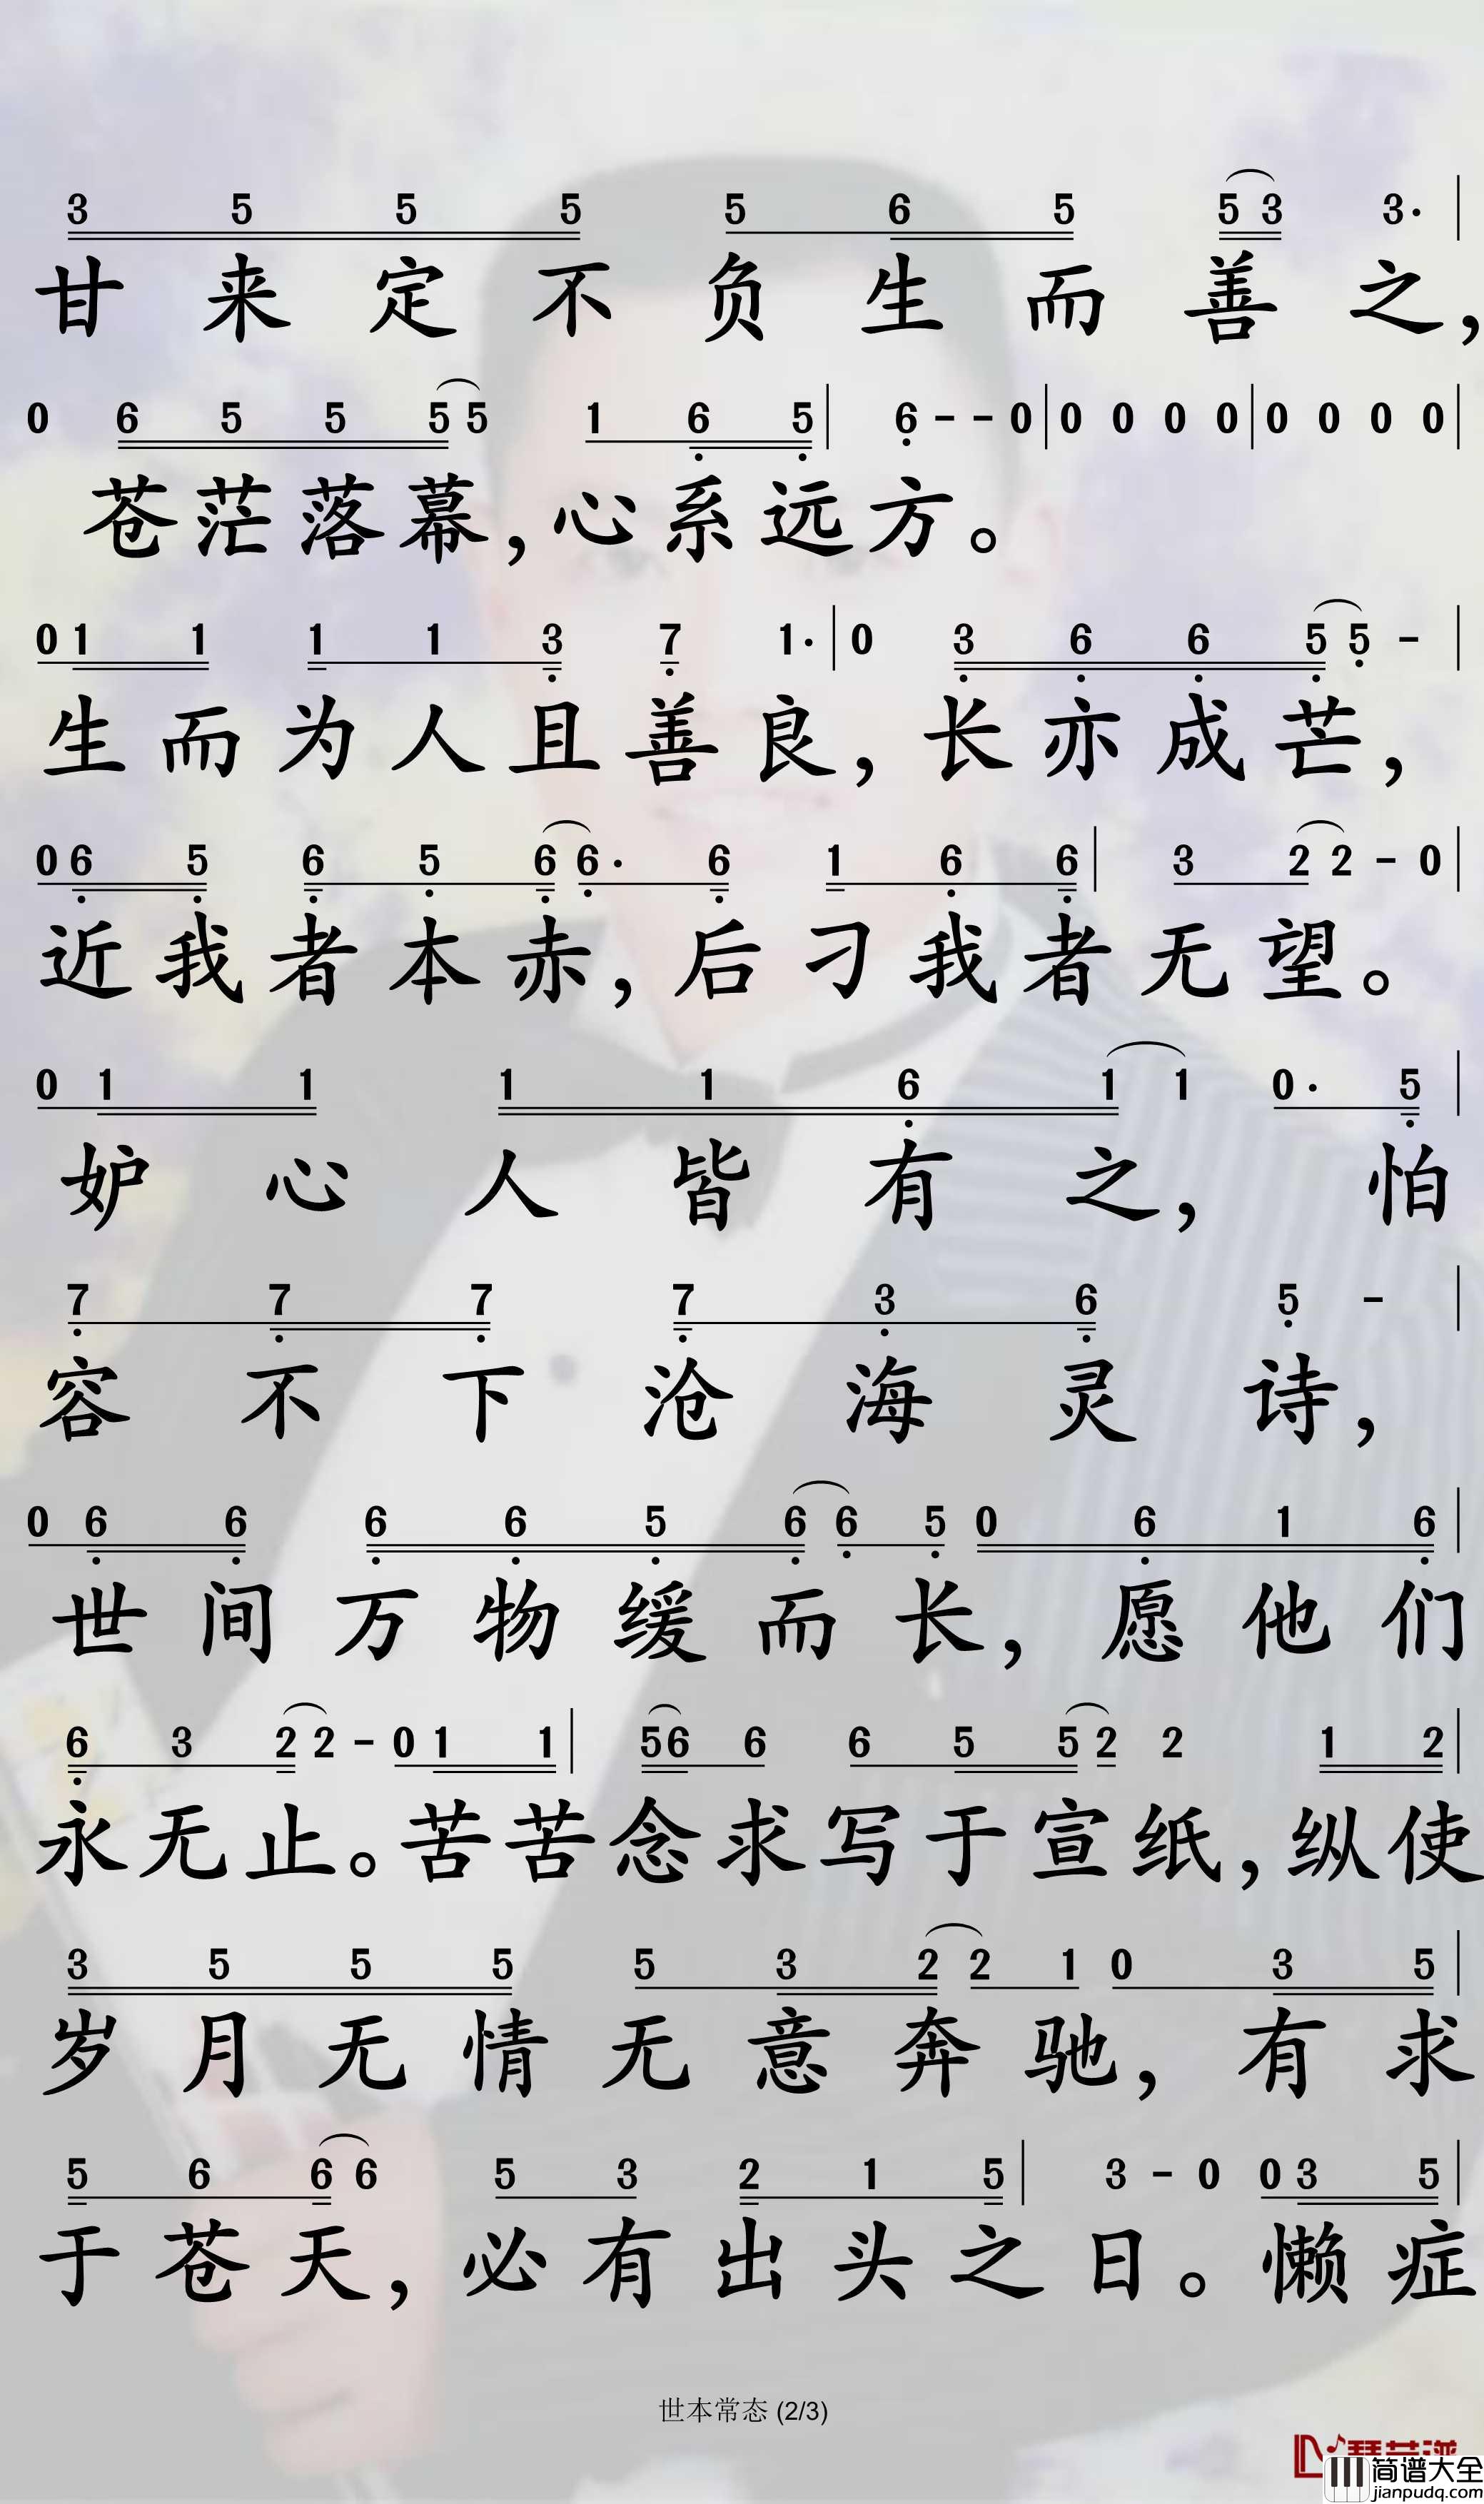 3 5 5 5 5 6 5 5 3 3. |
甘来定不负生而善之,
0 6 5 5 5 5 1 6 5 | 6 - - 0 | 0 0 0 0 | 0 0 0 0 |
苍茫落幕,心系远方。
0 1 1 1 1 3 7 1. | 0 3 6 6 5 5 - |
生而为人且善良,长亦成芒,
0 6 5 6 5 6 6. 6 1 6 6 | 3 2 2 - 0 |
近我者本赤,后刁我者无望。
0 1 1 1 1 6 1 1 0. 5 |
妒心人皆有之,怕
7 7 7 7 3 6 5 - |
容不下沧海灵诗,
0 6 6 6 6 5 6 6 5 0 6 1 6 |
世间万物缓而长,愿他们
6 3 2 2 - 0 1 1 | 5 6 6 6 5 5 2 2 1 2 |
永无止。苦苦念求写于宣纸,纵使
3 5 5 5 5 3 2 2 1 0 3 5 |
岁月无情无意奔驰,有求
5 6 6 6 5 3 2 1 5 | 3 - 0 0 3 5 |
于苍天,必有出头之日。懒症
世本常态 (2/3)
简谱大全
jianpudq.com